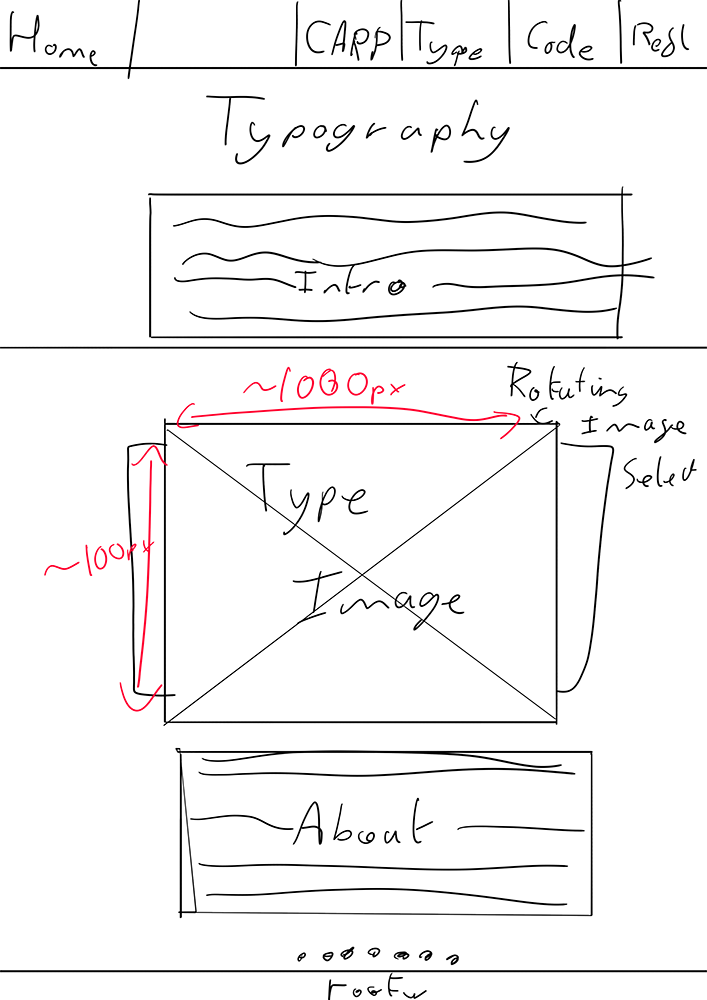 Home CARP Type Code Refl
Typography
Intro
~1000px
Rotating
Image
Select
Type
~100px
Image
About